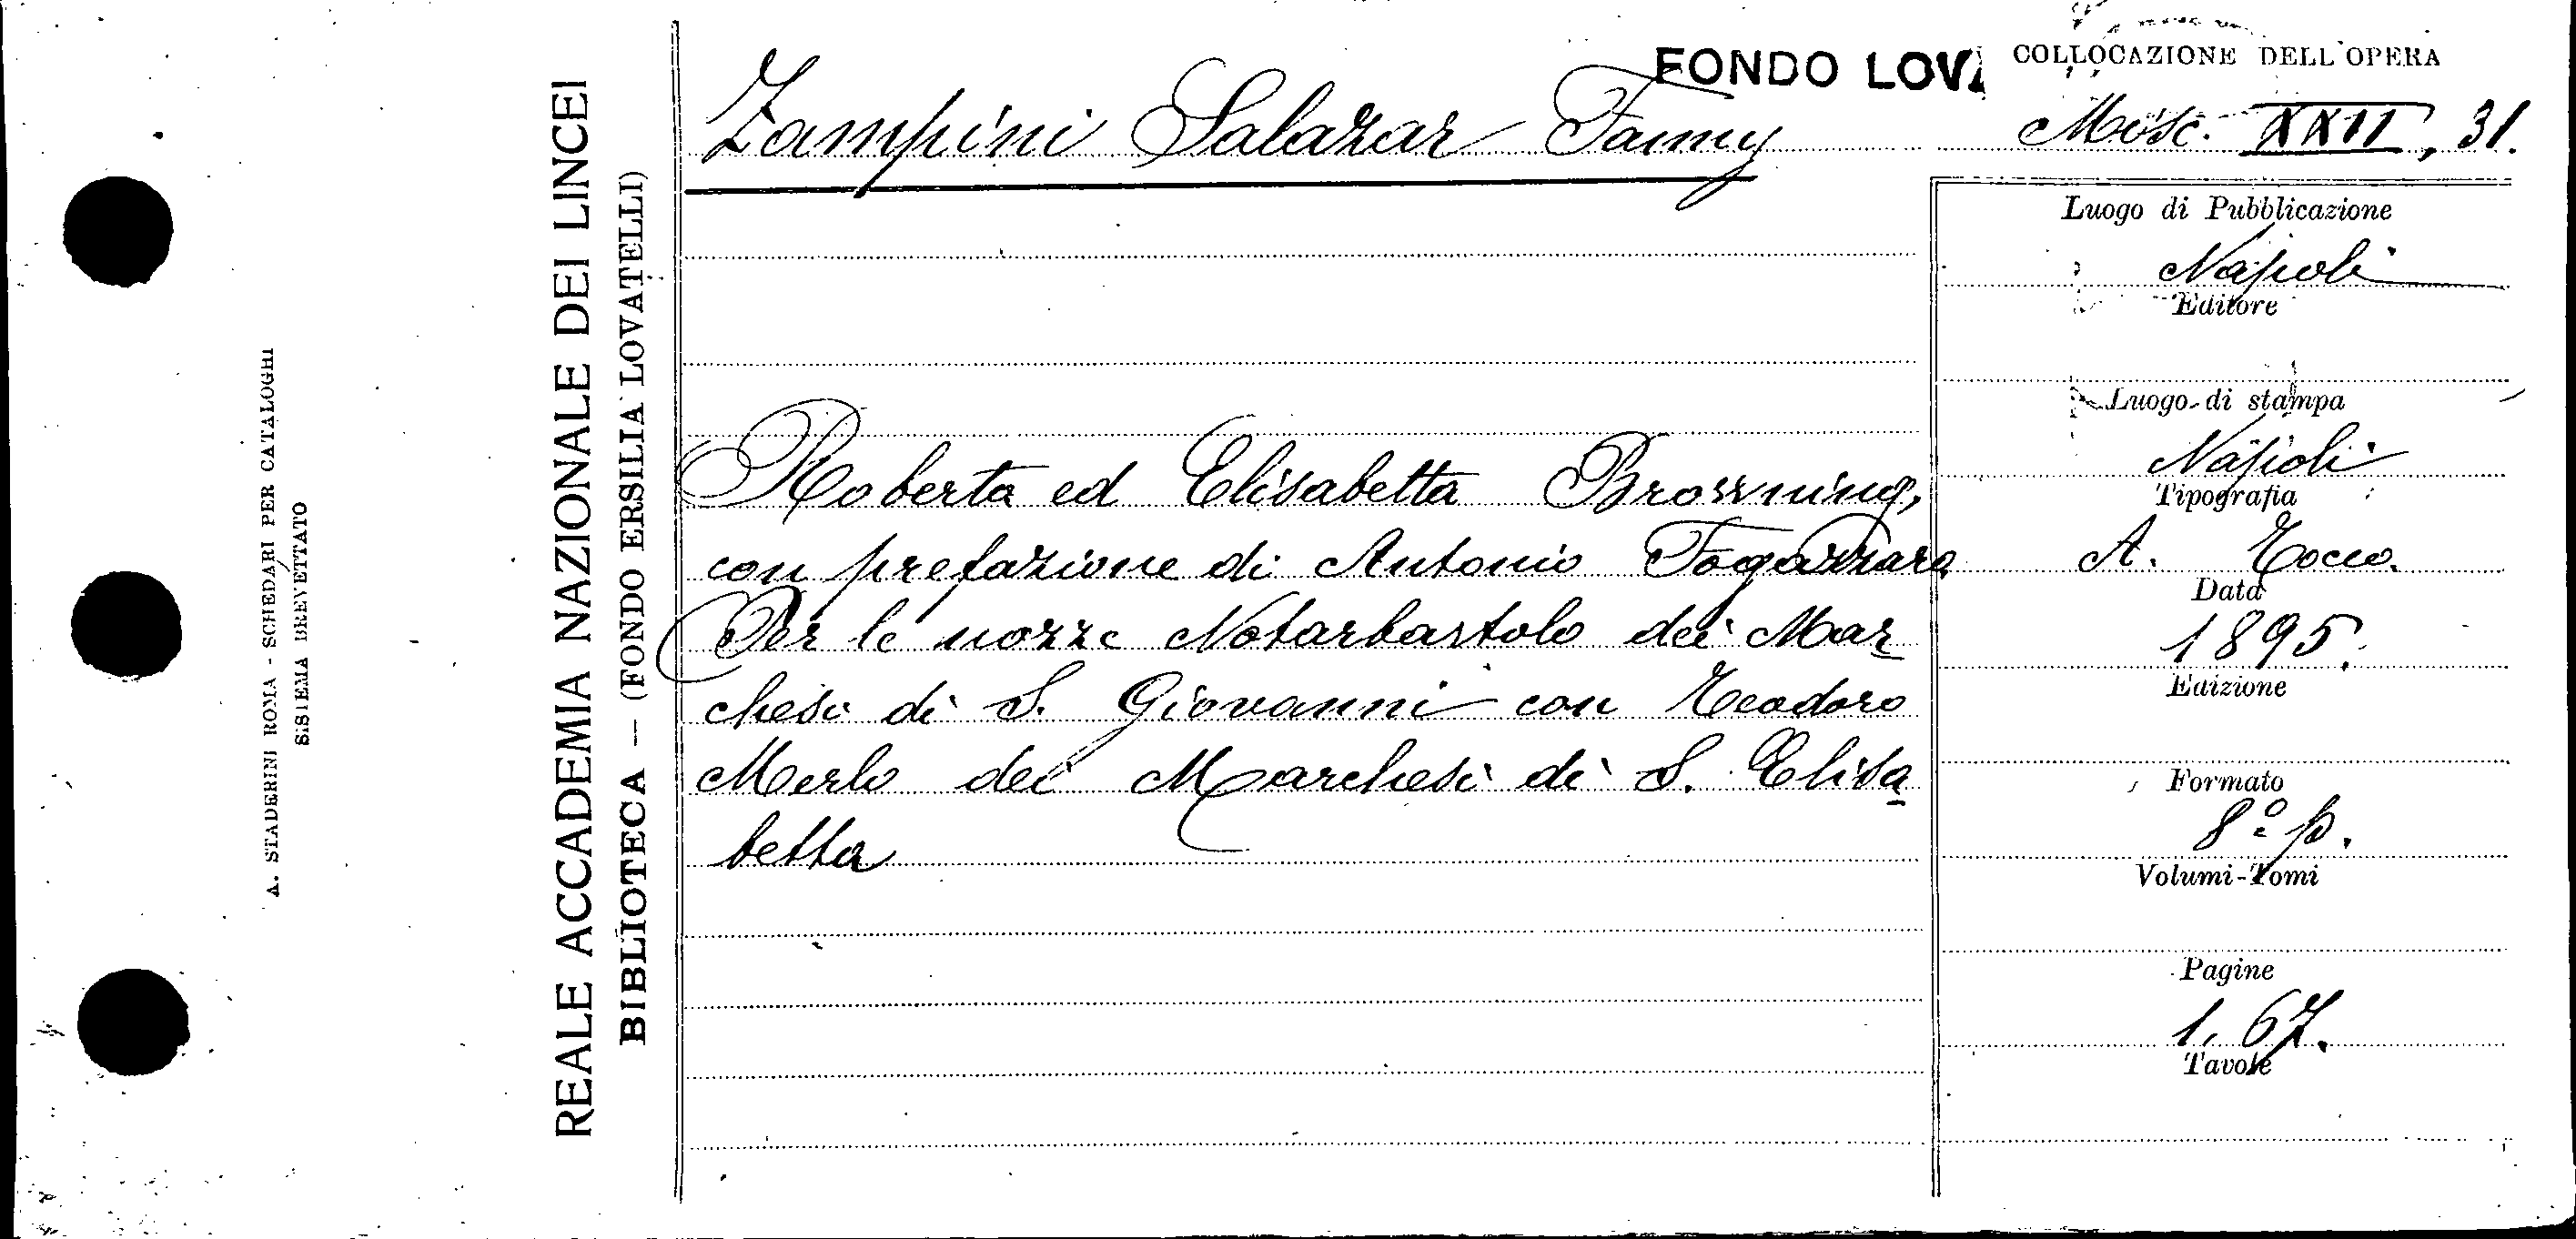 FONDO LOVA
COLLOCAZIONE DELL'OPERA
Zampini Salazar Fanny
Misc. XXII, 31.
Roberto ed Elisabetta Browning,
con prefazione di Antonio Fogazzaro
Per le nozze Notarbartolo dei Mar
chesi di S. Giovanni con Teodoro
Merlo dei Marchesi di S. Elisa
betta
Luogo di Pubblicazione
Napoli
Editore
Luogo di stampa
Napoli
Tipografia
A. Tocco.
Data
1895.
Edizione
Formato
8° p.
Volumi-Tomi
Pagine
1. 67.
Tavole
REALE ACCADEMIA NAZIONALE DEI LINCEI
BIBLIOTECA — (FONDO ERSILIA LOVATELLI)
A. STADERINI ROMA - SCHEDARI PER CATALOGHI
SISTEMA BREVETTATO